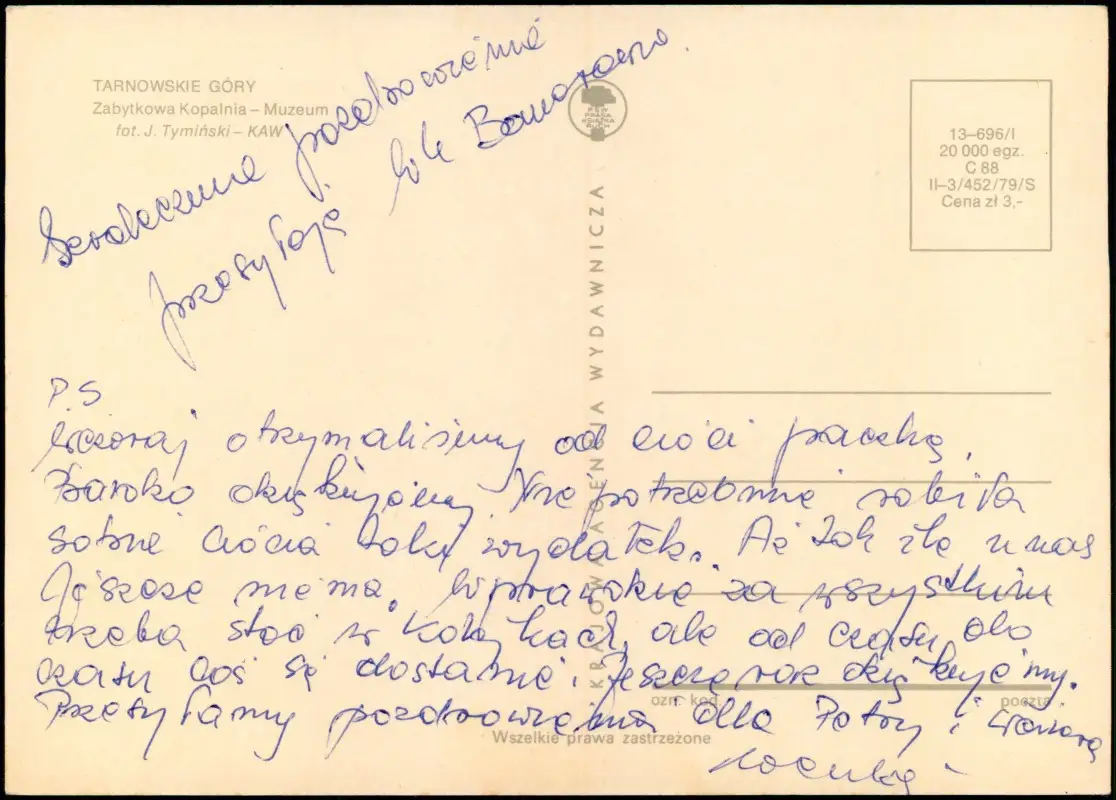 TARNOWSKIE GÓRY
Zabytkowa Kopalnia – Muzeum
fot. J. Tymiński – KAW
Serdeczne pozdrowienia
przesyłają
P.S
Wczoraj otrzymaliśmy od cioci paczkę.
Bardzo dziękujemy. Nie potrzebnie robiła
sobie ciocia taki wydatek. Aż tak źle u nas
jeszcze niema. Wprawdzie za wszystkim
trzeba stać w kolejkach, ale od czasu do
czasu coś się dostanie. Jeszcze raz dziękujemy.
Przesyłamy pozdrowienia dla Petry i
KRAJOWA AGENCJA WYDAWNICZA
RSW
PRASA
KSIĄŻKA
RUCH
13–696/I
20 000 egz.
C 88
II–3/452/79/S
Cena zł 3,-
ozn. kod.
poczta
Wszelkie prawa zastrzeżone